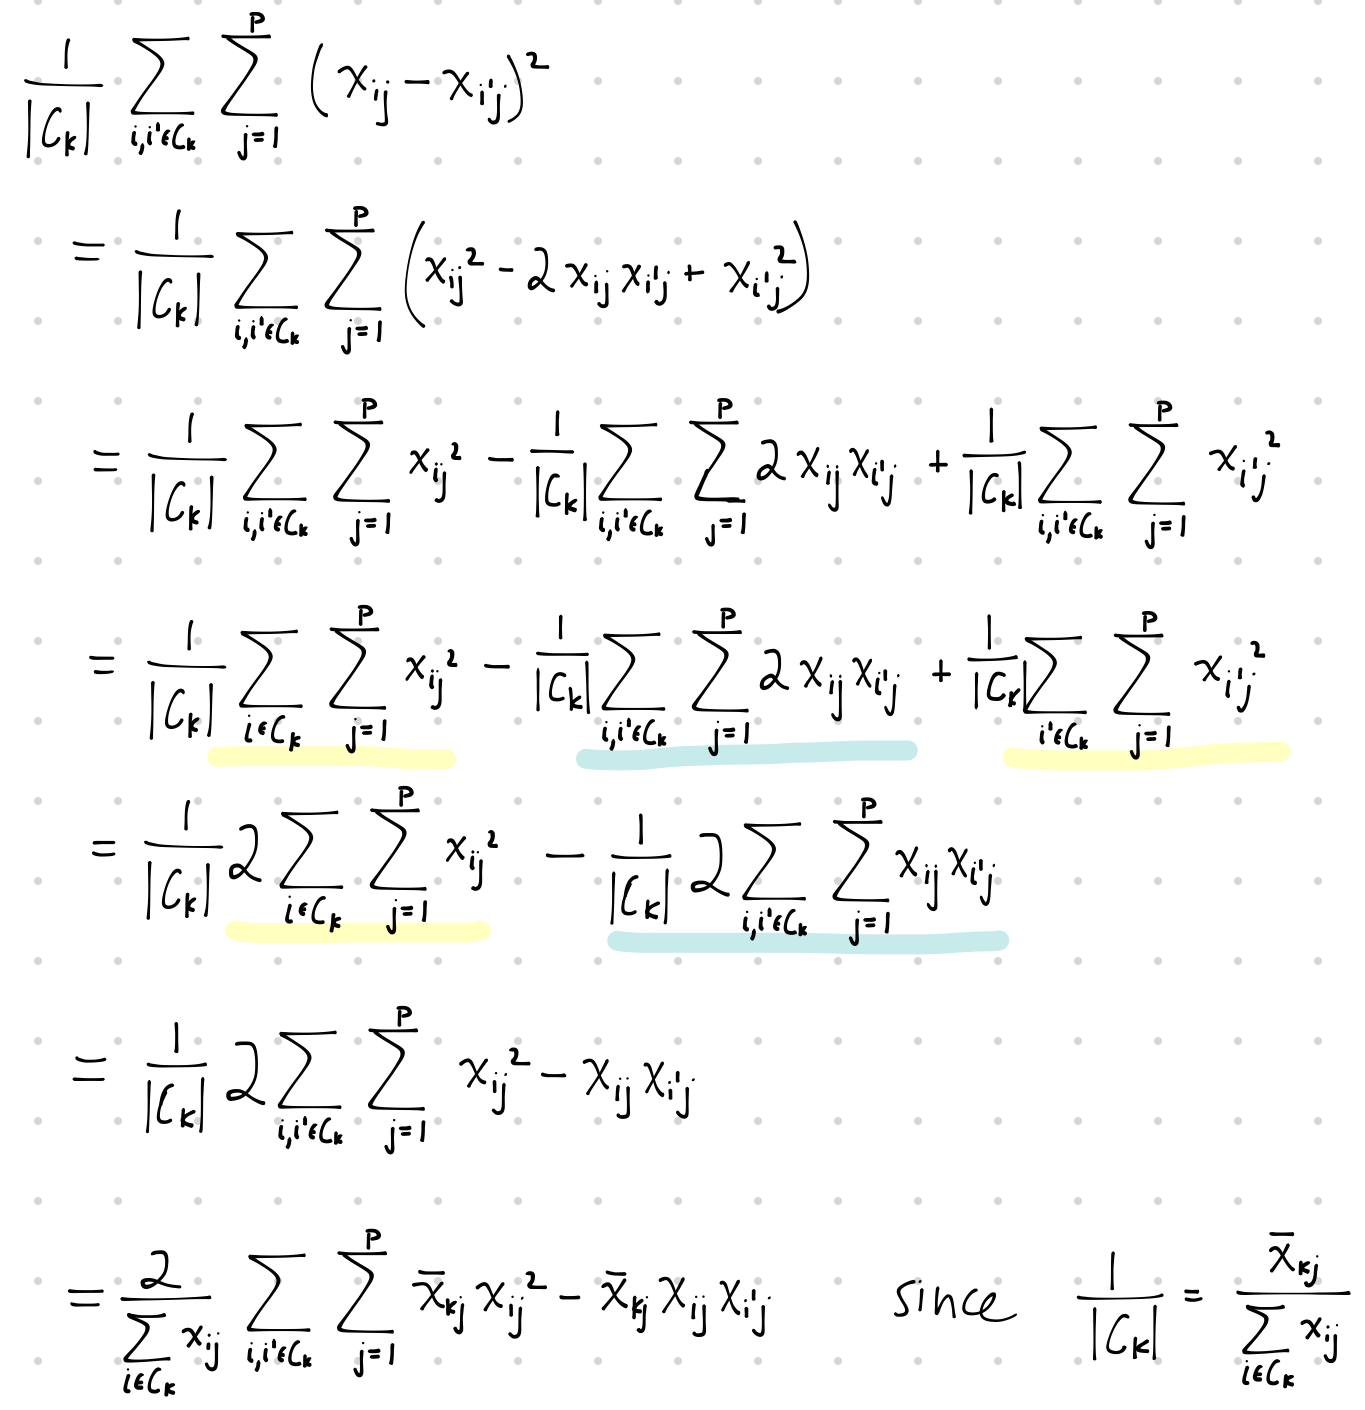 $\frac{1}{|C_k|} \sum_{i,i' \in C_k} \sum_{j=1}^{P} (x_{ij} - x_{i'j})^2$
$= \frac{1}{|C_k|} \sum_{i,i' \in C_k} \sum_{j=1}^{P} (x_{ij}^2 - 2 x_{ij} x_{i'j} + x_{i'j}^2)$
$= \frac{1}{|C_k|} \sum_{i,i' \in C_k} \sum_{j=1}^{P} x_{ij}^2 - \frac{1}{|C_k|} \sum_{i,i' \in C_k} \sum_{j=1}^{P} 2 x_{ij} x_{i'j} + \frac{1}{|C_k|} \sum_{i,i' \in C_k} \sum_{j=1}^{P} x_{i'j}^2$
$= \frac{1}{|C_k|} \sum_{i \in C_k} \sum_{j=1}^{P} x_{ij}^2 - \frac{1}{|C_k|} \sum_{i,i' \in C_k} \sum_{j=1}^{P} 2 x_{ij} x_{i'j} + \frac{1}{|C_k|} \sum_{i' \in C_k} \sum_{j=1}^{P} x_{i'j}^2$
$= \frac{1}{|C_k|} 2 \sum_{i \in C_k} \sum_{j=1}^{P} x_{ij}^2 - \frac{1}{|C_k|} 2 \sum_{i,i' \in C_k} \sum_{j=1}^{P} x_{ij} x_{i'j}$
$= \frac{1}{|C_k|} 2 \sum_{i,i' \in C_k} \sum_{j=1}^{P} x_{ij}^2 - x_{ij} x_{i'j}$
$= \frac{2}{\sum_{i \in C_k} x_{ij}} \sum_{i,i' \in C_k} \sum_{j=1}^{P} \bar{x}_{kj} x_{ij}^2 - \bar{x}_{kj} x_{ij} x_{i'j}$ since $\frac{1}{|C_k|} = \frac{\bar{x}_{kj}}{\sum_{i \in C_k} x_{ij}}$